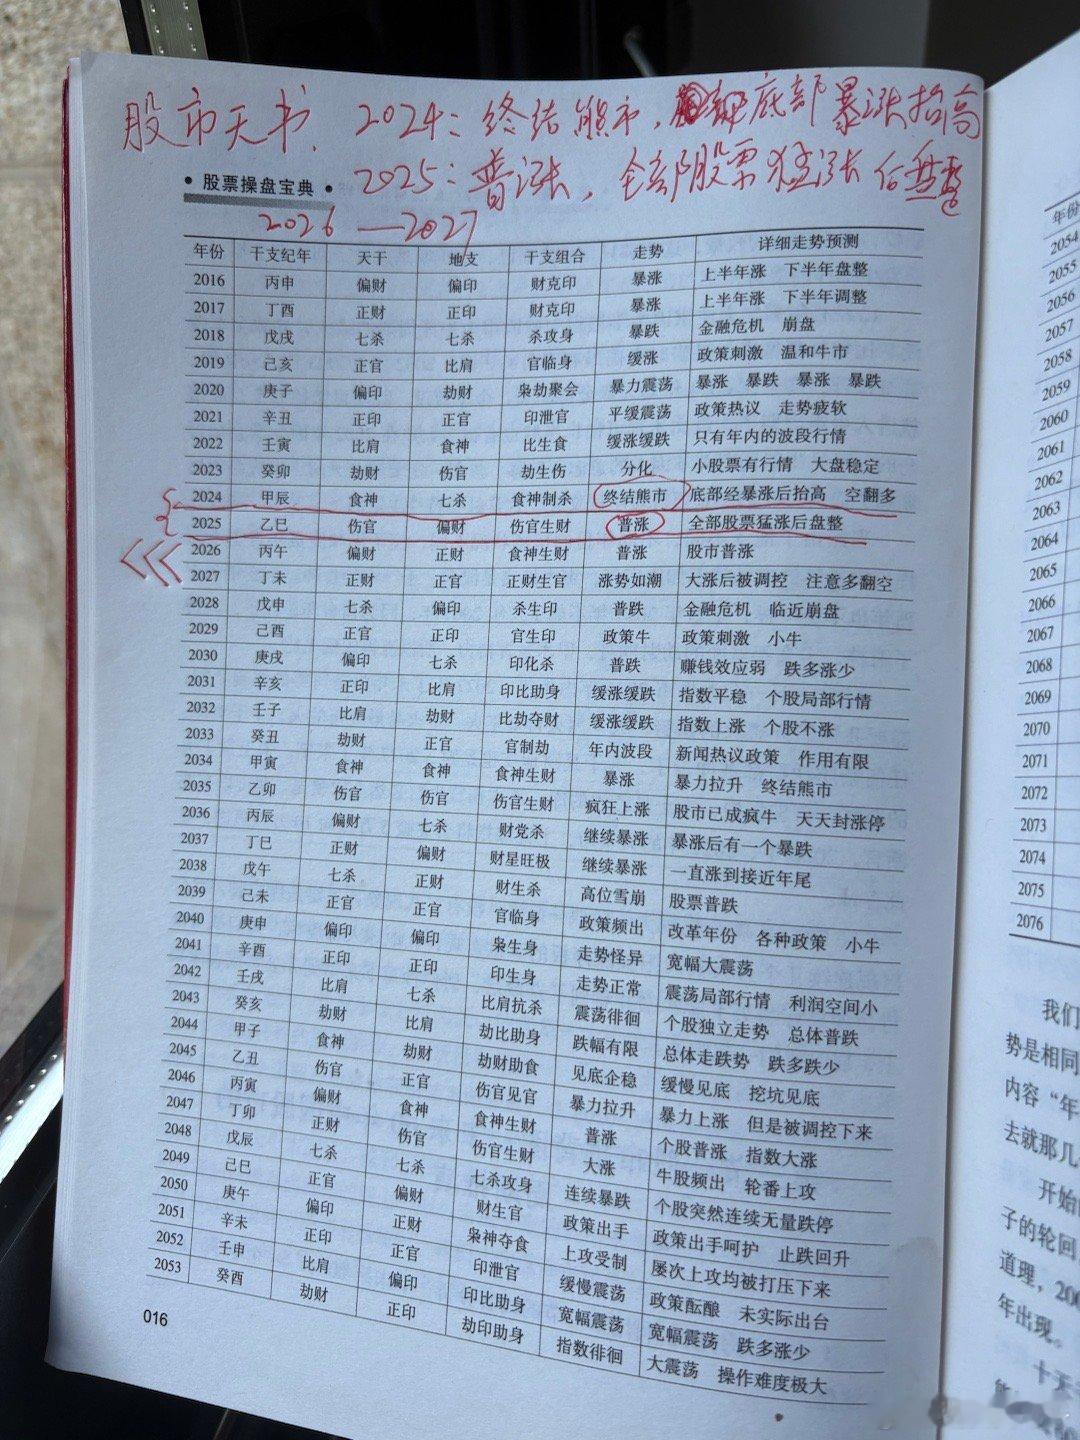 股市天书. 2024: 终结熊市, 底部暴涨抬高
2025: 普涨, 全部股票猛涨后盘整
• 股票操盘宝典 •
2026—2027
年份 干支纪年 天干 地支 干支组合 走势 详细走势预测
2016 丙申 偏财 偏印 财克印 暴涨 上半年涨 下半年盘整
2017 丁酉 正财 正印 财克印 暴涨 上半年涨 下半年调整
2018 戊戌 七杀 七杀 杀攻身 暴跌 金融危机 崩盘
2019 己亥 正官 比肩 官临身 缓涨 政策刺激 温和牛市
2020 庚子 偏印 劫财 枭劫聚会 暴力震荡 暴涨 暴跌 暴涨 暴跌
2021 辛丑 正印 正官 印泄官 平缓震荡 政策热议 走势疲软
2022 壬寅 比肩 食神 比生食 缓涨缓跌 只有年内的波段行情
2023 癸卯 劫财 伤官 劫生伤 分化 小股票有行情 大盘稳定
2024 甲辰 食神 七杀 食神制杀 终结熊市 底部经暴涨后抬高 空翻多
2025 乙巳 伤官 偏财 伤官生财 普涨 全部股票猛涨后盘整
2026 丙午 偏财 正财 食神生财 普涨 股市普涨
2027 丁未 正财 正官 正财生官 涨势如潮 大涨后被调控 注意多翻空
2028 戊申 七杀 偏印 杀生印 普跌 金融危机 临近崩盘
2029 己酉 正官 正印 官生印 政策牛 政策刺激 小牛
2030 庚戌 偏印 七杀 印化杀 普跌 赚钱效应弱 跌多涨少
2031 辛亥 正印 比肩 印比助身 缓涨缓跌 指数平稳 个股局部行情
2032 壬子 比肩 劫财 比劫夺财 缓涨缓跌 指数上涨 个股不涨
2033 癸丑 劫财 正官 官制劫 年内波段 新闻热议政策 作用有限
2034 甲寅 食神 食神 食神生财 暴涨 暴力拉升 终结熊市
2035 乙卯 伤官 伤官 伤官生财 疯狂上涨 股市已成疯牛 天天封涨停
2036 丙辰 偏财 七杀 财党杀 继续暴涨 暴涨后有一个暴跌
2037 丁巳 正财 偏财 财星旺极 继续暴涨 一直涨到接近年尾
2038 戊午 七杀 正财 财生杀 高位雪崩 股票普跌
2039 己未 正官 正官 官临身 政策频出 改革年份 各种政策 小牛
2040 庚申 偏印 偏印 枭生身 走势怪异 宽幅大震荡
2041 辛酉 正印 正印 印生身 走势正常 震荡局部行情 利润空间小
2042 壬戌 比肩 七杀 比肩抗杀 震荡徘徊 个股独立走势 总体普跌
2043 癸亥 劫财 比肩 劫比助身 跌幅有限 总体走跌势 跌多跌少
2044 甲子 食神 劫财 劫财助食 见底企稳 缓慢见底 挖坑见底
2045 乙丑 伤官 正官 伤官见官 暴力拉升 暴力上涨 但是被调控下来
2046 丙寅 偏财 食神 食神生财 普涨 个股普涨 指数大涨
2047 丁卯 正财 伤官 伤官生财 大涨 牛股频出 轮番上攻
2048 戊辰 七杀 七杀 七杀攻身 连续暴跌 个股突然连续无量跌停
2049 己巳 正官 偏财 财生官 政策出手 政策出手呵护 止跌回升
2050 庚午 偏印 正财 枭神夺食 上攻受制 屡次上攻均被打压下来
2051 辛未 正印 正官 印泄官 缓慢震荡 政策酝酿 未实际出台
2052 壬申 比肩 偏印 印比助身 宽幅震荡 宽幅震荡 跌多涨少
2053 癸酉 劫财 正印 劫印助身 指数徘徊 大震荡 操作难度极大
016
年份
2054
2055
2056
2057
2058
2059
2060
2061
2062
2063
2064
2065
2066
2067
2068
2069
2070
2071
2072
2073
2074
2075
2076
我们
势是相同
内容“年
去就那几
开始
子的轮回
道理，200
年出现。
十天